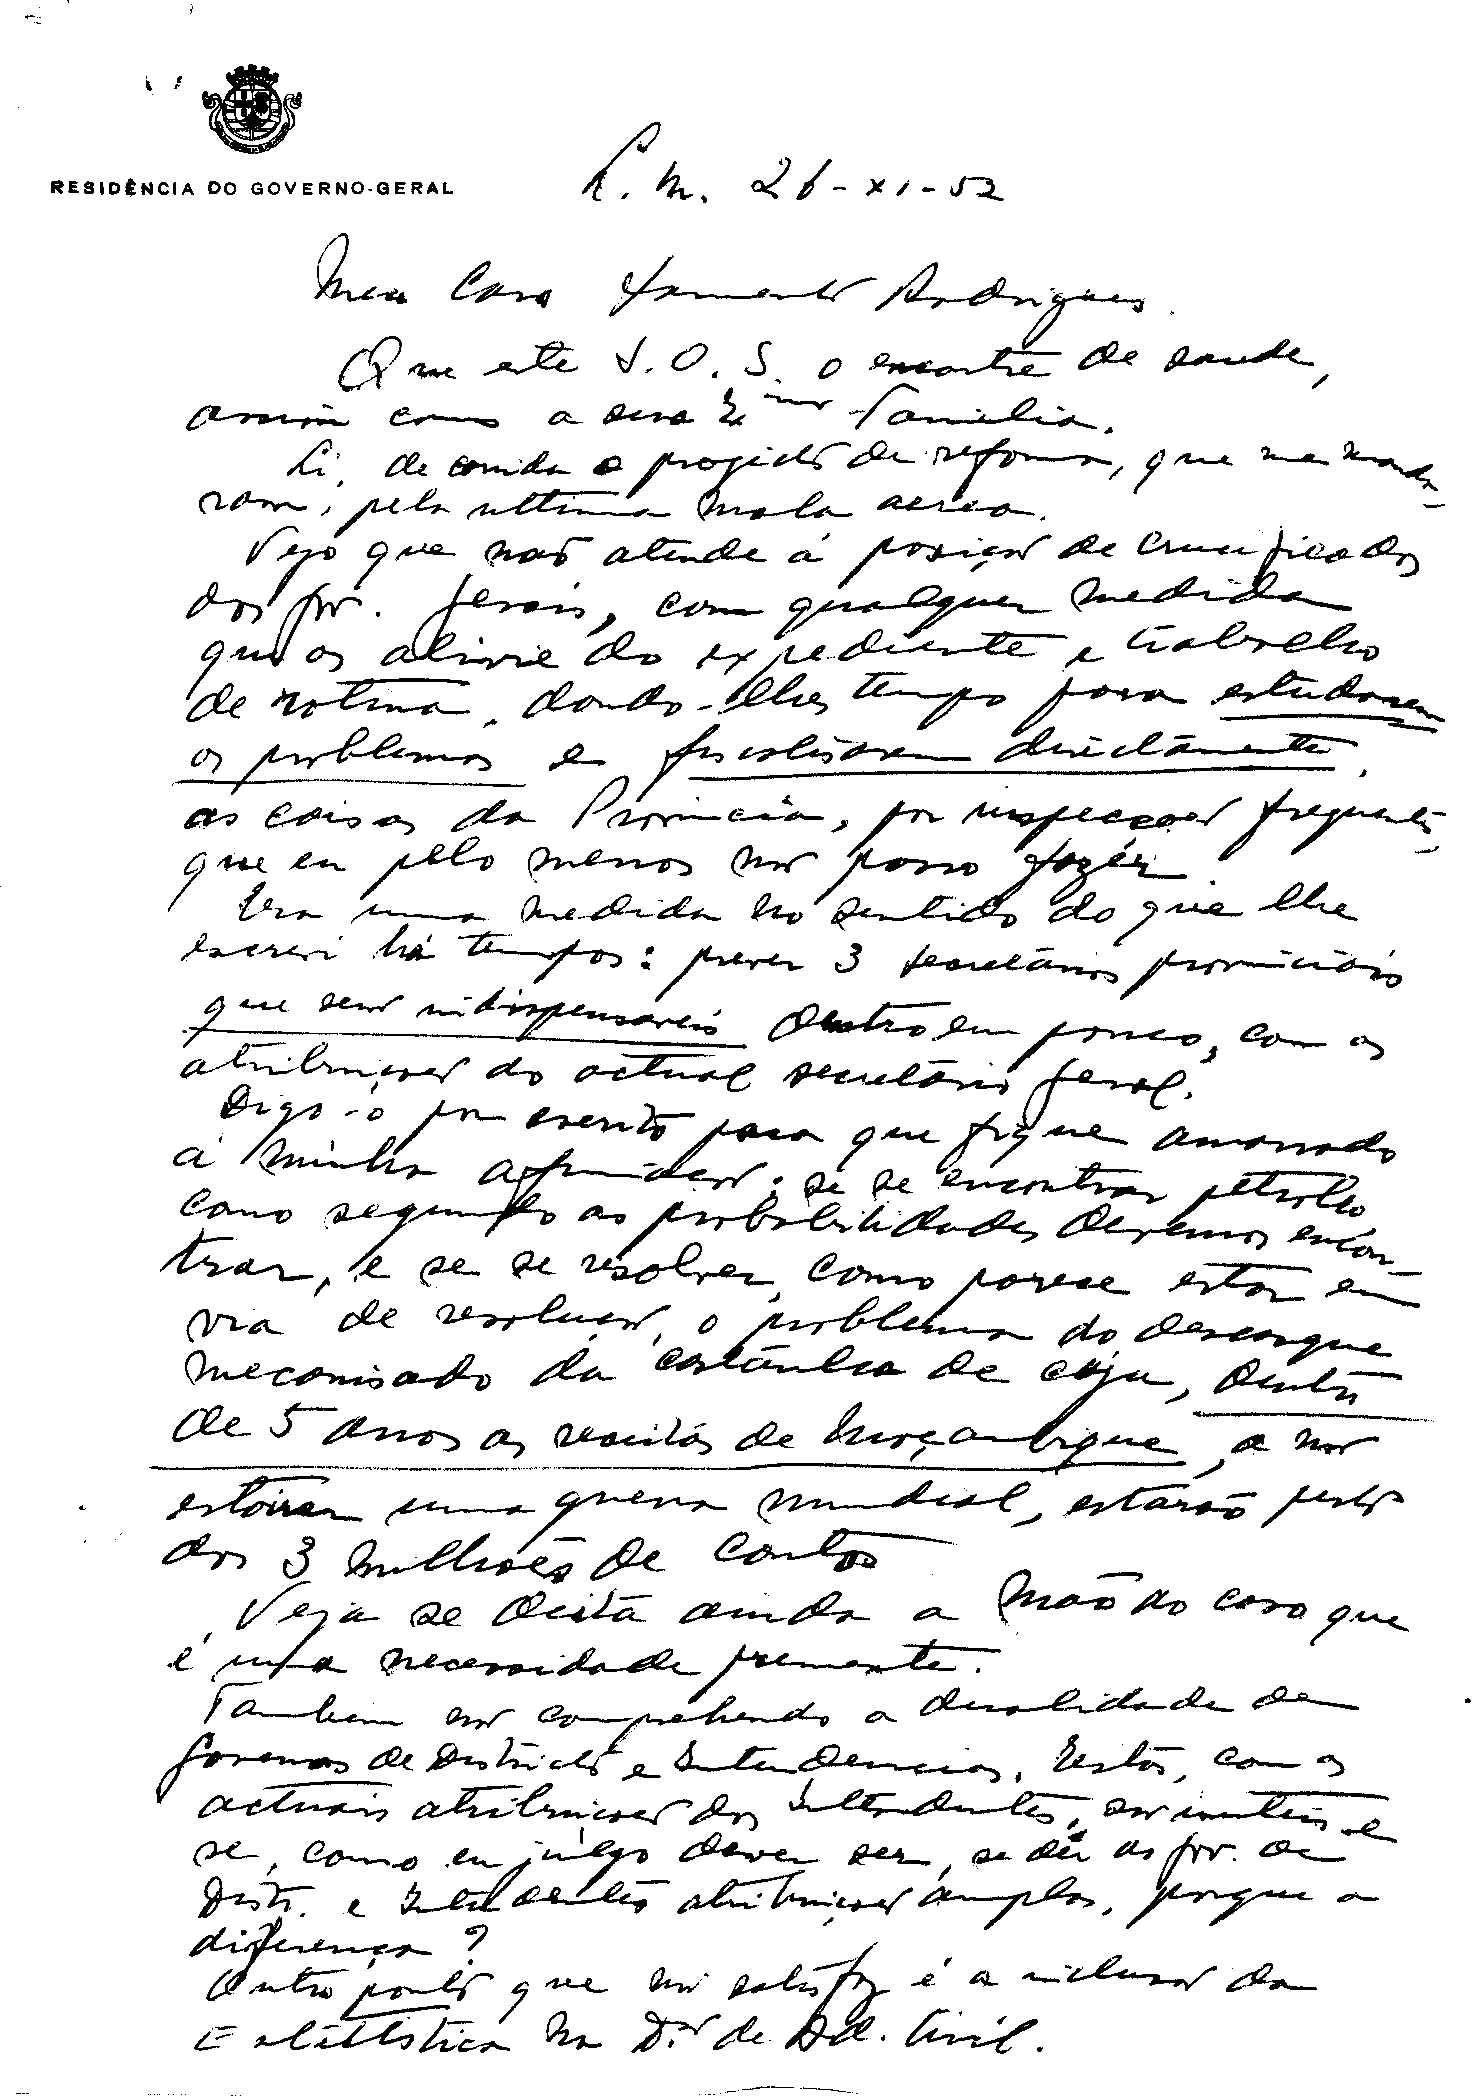 RESIDÊNCIA DO GOVERNO-GERAL
L. M. 26-XI-52
Meu Caro Sarmento Rodrigues
Que este S.O.S. o encontre de saude,
assim como a sua Exma Familia.
Li, de corrida o projecto de reforma, que me manda-
ram, pela ultima mala aerea.
Vejo que não atende á posição de crucificados
dos Gov. Gerais, com qualquer medida
que os alivie do expediente e trabalho
de rotina, dando-lhes tempo para estudarem
os problemas e fiscalisarem directamente,
as coisas da Provincia, por inspecções frequentes,
que eu pelo menos não posso fazer.
Era uma medida no sentido do que lhe
escrevi há tempos: prever 3 secretários provinciais
que serão indispensaveis dentro em pouco, com as
atribuições do actual secretário geral.
Digo-o por escrito para que fique amarrado
á minha afirmação: se se encontrar petroleo,
como segundo as probabilidades devemos encon-
trar, e se se resolver, como parece estar em
via de resolução, o problema do descasque
mecanisado da castanha de cajú, dentro
de 5 anos as receitas de Moçambique, a não
estoirar uma guerra mundial, estarão perto
dos 3 milhões de contos
Veja se deita ainda a mão ao caso que
é uma necessidade premente.
Tambem não comprehendo a dualidade de
Governos de Districto e Intendencias. Estas, com as
actuais atribuições dos Intendentes, são inuteis e
se, como eu julgo dever ser, se dá aos Gov. de
Distr. e Intendentes atribuições amplas, porque a
diferença?
Outro ponto que não satisfaz é a inclusão da
Estatistica na D.ção de Ad. Civil.